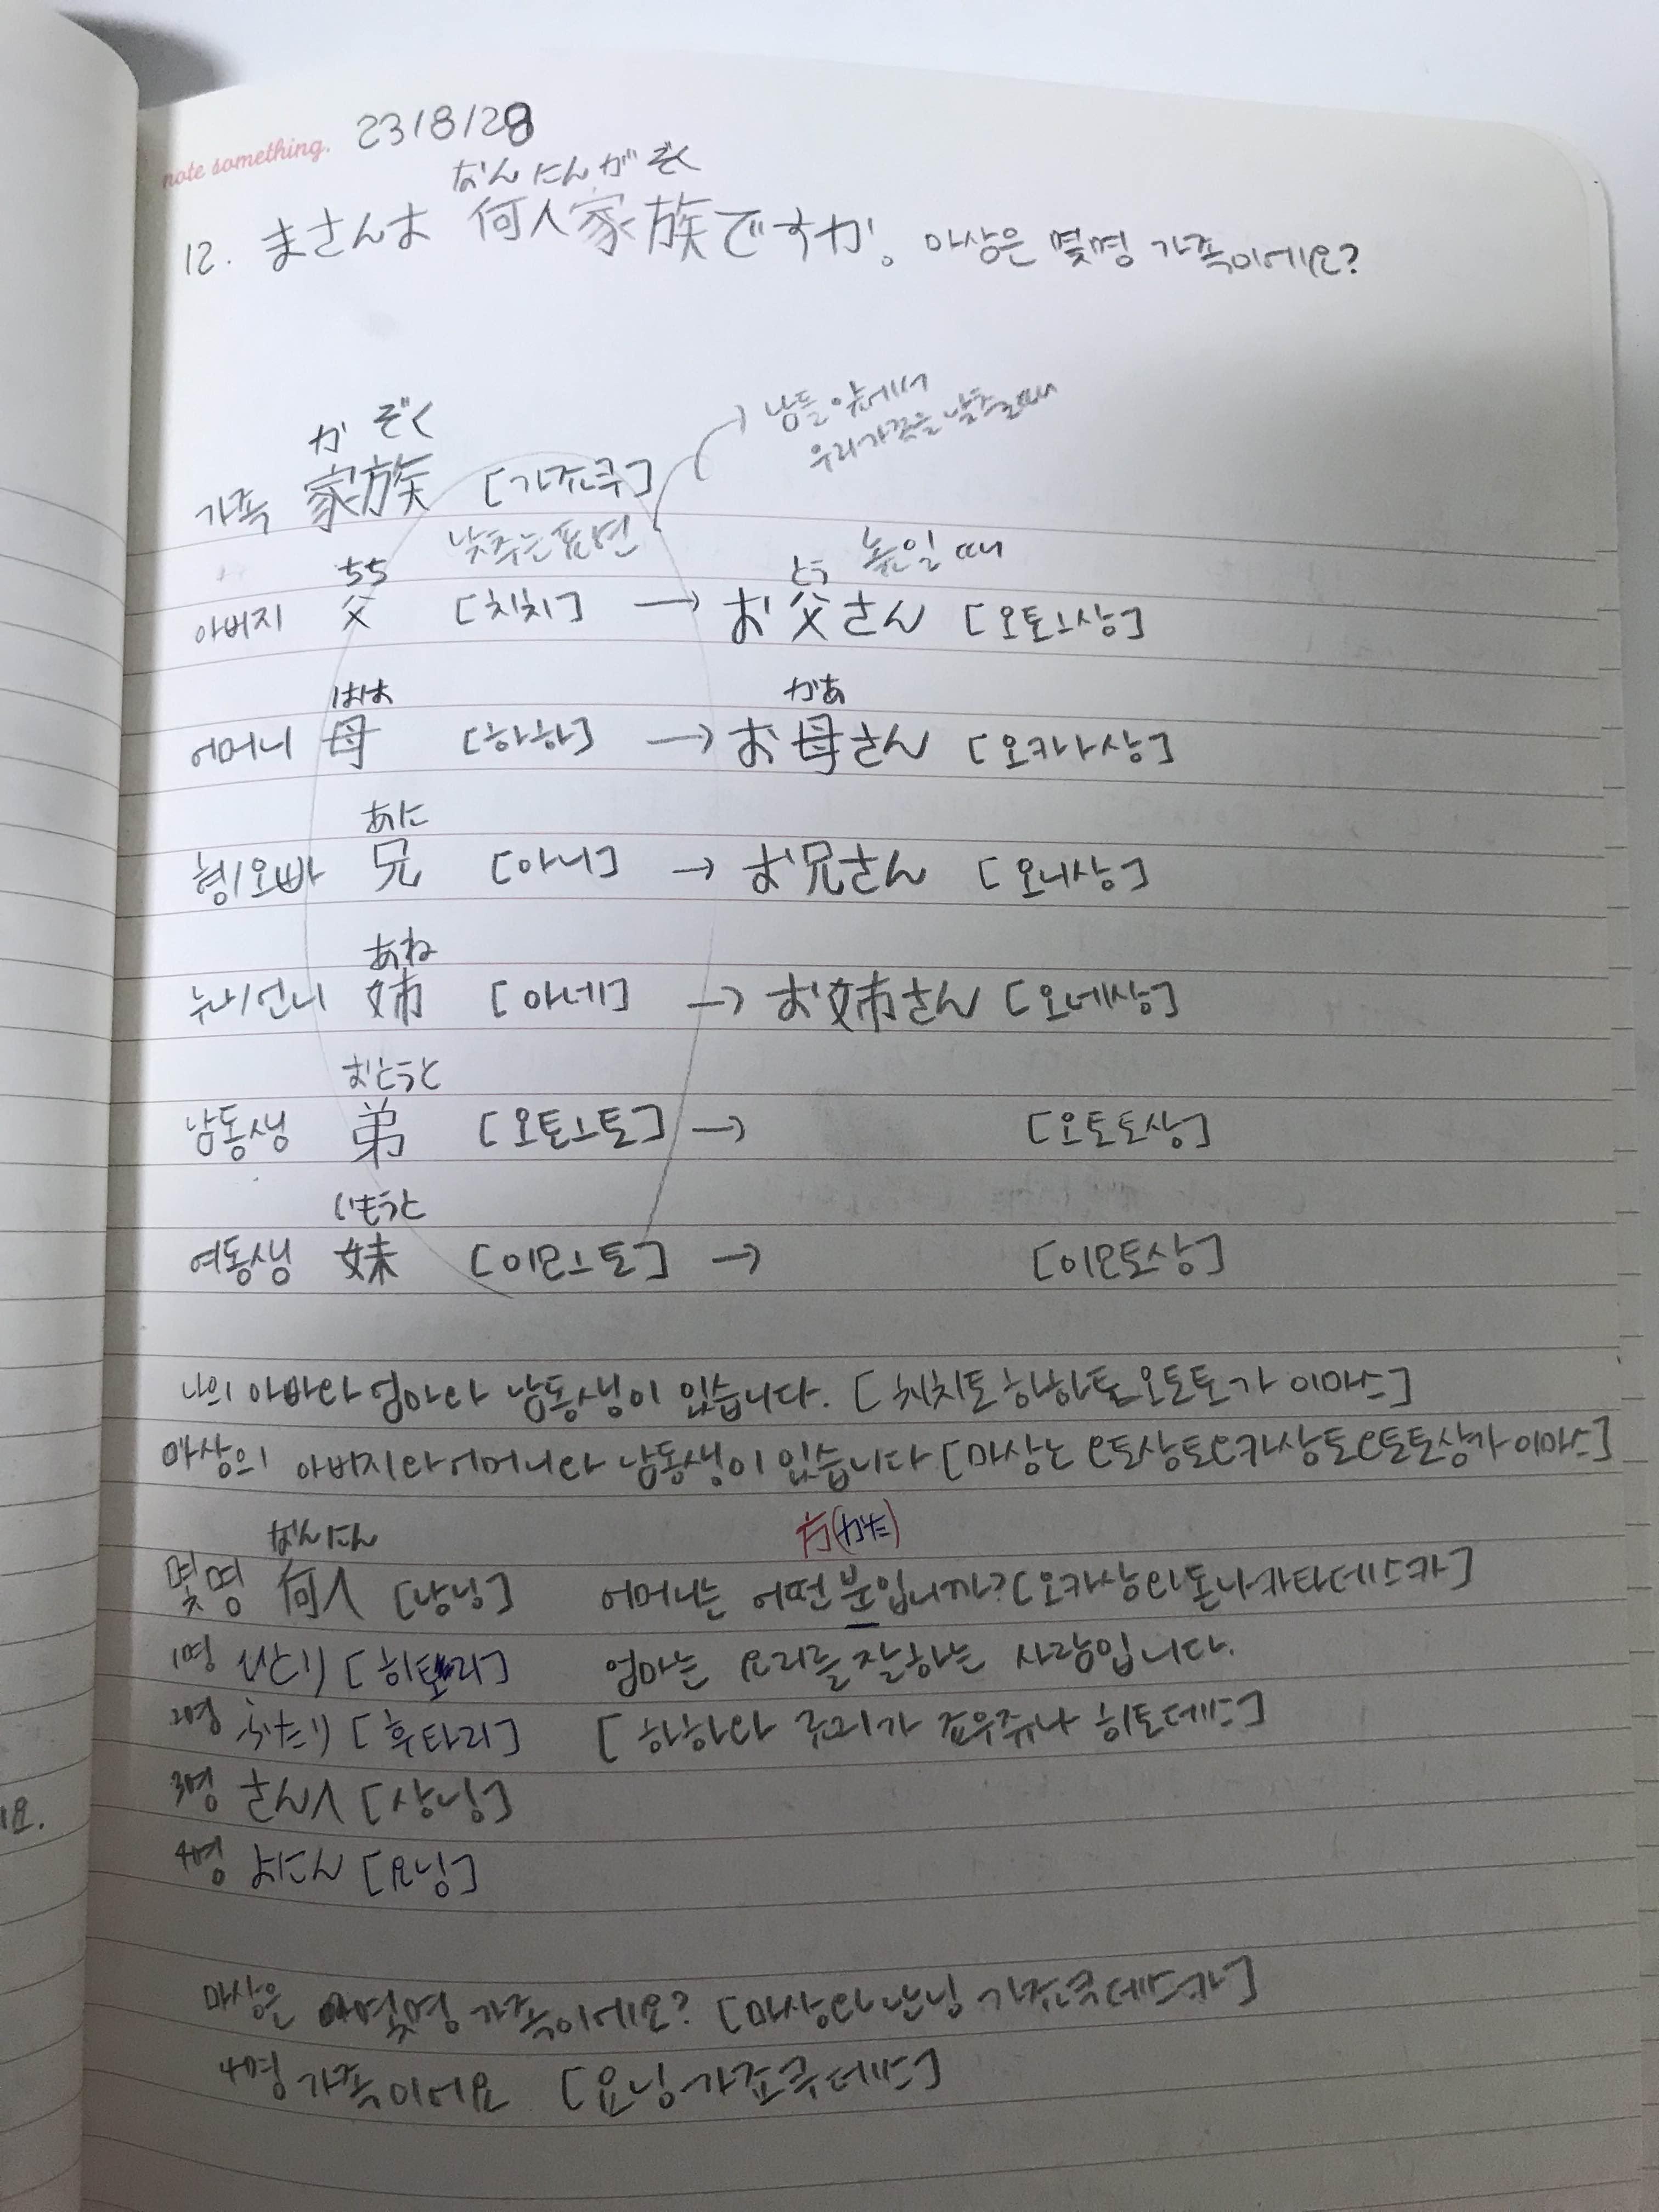 note something. 23/8/28
なんにんがぞく
12. まさんは 何人家族ですか。 마상은 몇명 가족이에요?
남들 앞에서
우리가족을 낮출때
かぞく
가족 家族 [가조쿠]
낮추는표현 높일때
ちち とう
아버지 父 [치치] → お父さん [오토ㅗ상]
はは かあ
어머니 母 [하하] → お母さん [오카ㅏ상]
あに
형/오빠 兄 [아니] → お兄さん [오니상]
あね
누나/언니 姉 [아네] → お姉さん [오네상]
おとうと
남동생 弟 [오토ㅗ토] → [오토토상]
いもうと
여동생 妹 [이모ㅗ토] → [이모토상]
나의 아빠와 엄마와 남동생이 있습니다. [치치토 하하토 오토토가 이마스]
마상의 아버지와 어머니와 남동생이 있습니다 [마상노 오토상토오카상토오토토상가 이마스]
なんにん 方(かた)
몇명 何人 [난닝] 어머니는 어떤 분입니까? [오카상와 돈나카타데스카]
1명 ひとり [히토리] 엄마는 요리를 잘하는 사람입니다.
2명 ふたり [후타리] [하하와 료리가 죠우쥬나 히토데스]
3명 さん人 [상닝]
4명 よにん [요닝]
18.
마상은 몇명 가족이에요? [마상와 난닝 가조쿠데스카]
4명 가족이에요 [요닝가조쿠데스]